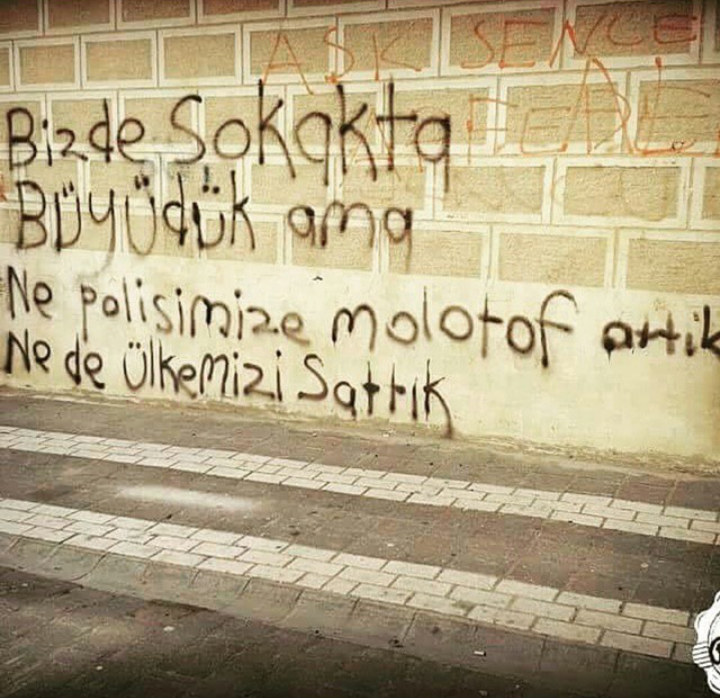 AŞK SENCE
AFFEDER
Bizde Sokakta
Büyüdük ama
Ne polisimize molotof attık
Ne de ülkemizi Sattık